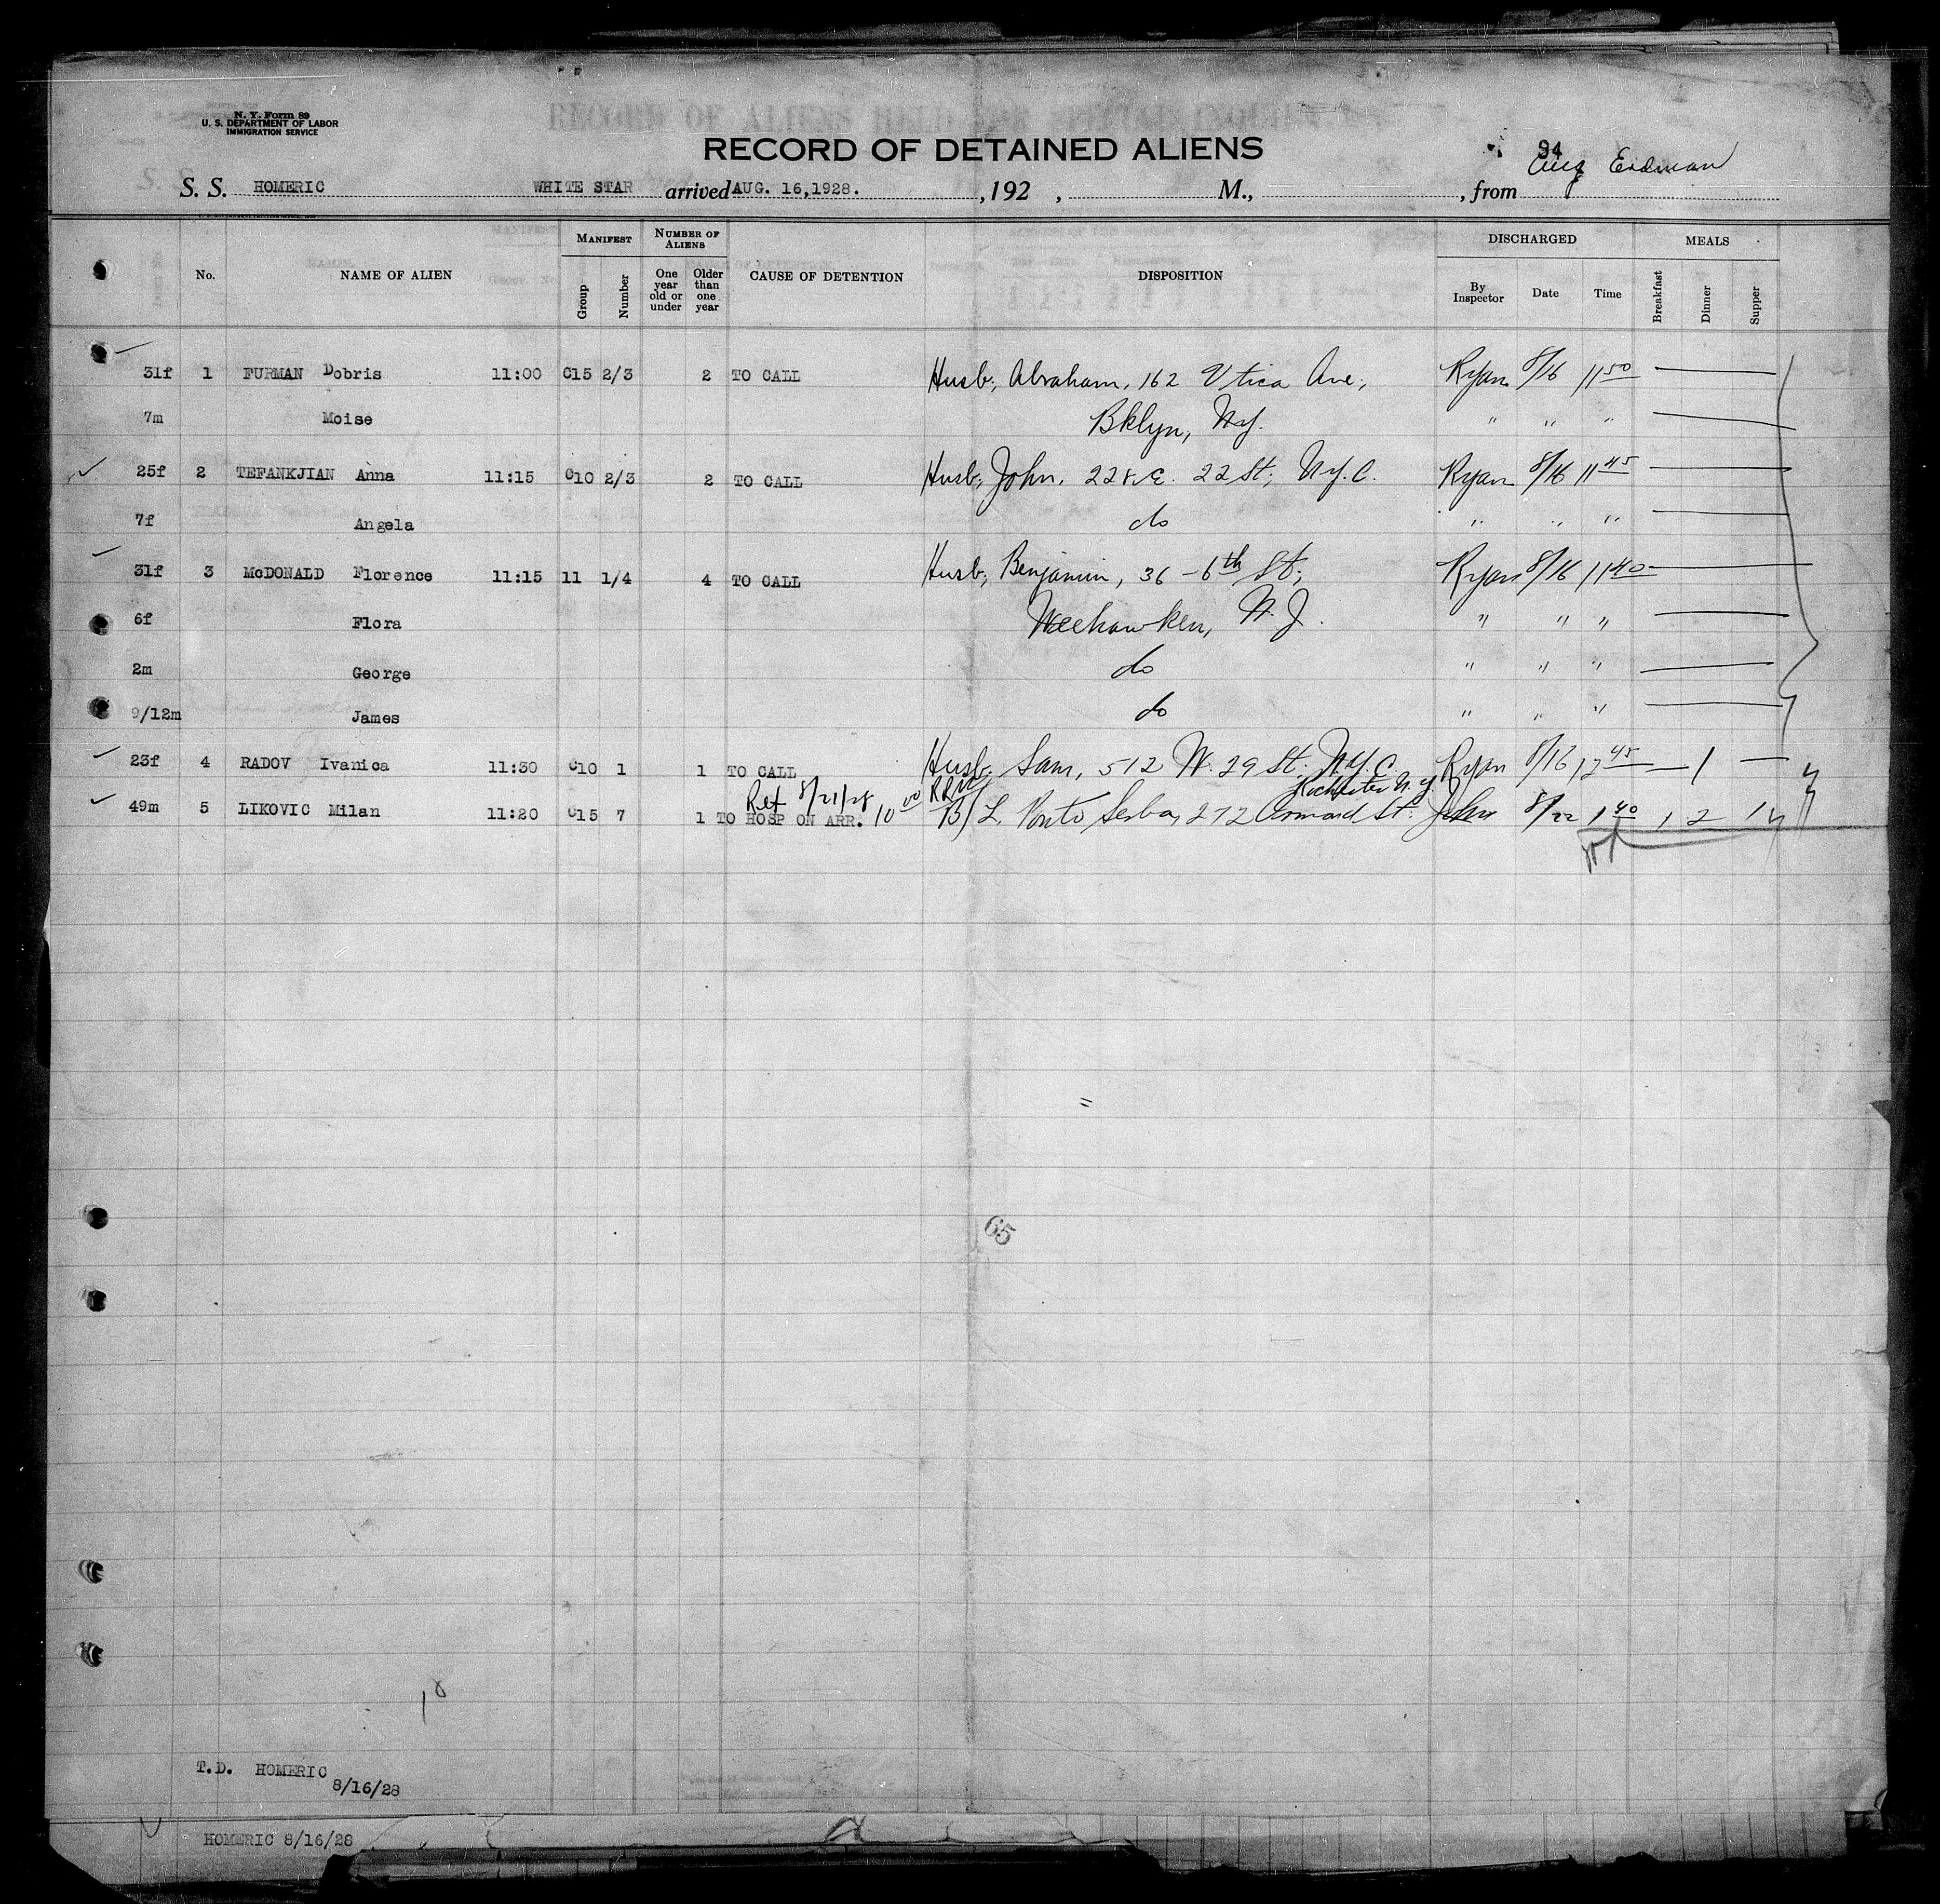 N. Y. Form 89
U. S. DEPARTMENT OF LABOR
IMMIGRATION SERVICE
RECORD OF DETAINED ALIENS
94
S. S. HOMERIC WHITE STAR arrived AUG. 16,1928. , 192 , M., , from Erdman
No. NAME OF ALIEN MANIFEST Group Number NUMBER OF ALIENS One year old or under Older than one year CAUSE OF DETENTION DISPOSITION DISCHARGED By Inspector Date Time MEALS Breakfast Dinner Supper
31f 1 FURMAN Dobris 11:00 C15 2/3 2 TO CALL Husb; Abraham, 162 Utica Ave; Ryan 8/16 11 50
7m Moise Bklyn, N.Y. " " "
25f 2 TEFANKJIAN Anna 11:15 C10 2/3 2 TO CALL Husb; John, 228 E. 22 St; N.Y.C. Ryan 8/16 11 45
7f Angela do " " "
31f 3 McDONALD Florence 11:15 11 1/4 4 TO CALL Husb; Benjamin, 36 - 6th St; Ryan 8/16 11 40
6f Flora Weehawken, N.J. " " "
2m George do " " "
9/12m James do " " "
23f 4 RADOV Ivanica 11:30 C10 1 1 TO CALL Husb; Sam, 512 W. 29 St; N.Y.C. Ryan 8/16 12 45 — 1 —
8/21/28 Rochester N.Y.
49m 5 LIKOVIC Milan 11:20 C15 7 1 TO HOSP ON ARR. 10 00 B/L 272 Ormond St. 8/22 1 40 1 2 1
65
18
T.D. HOMERIC
8/16/28
HOMERIC 8/16/28